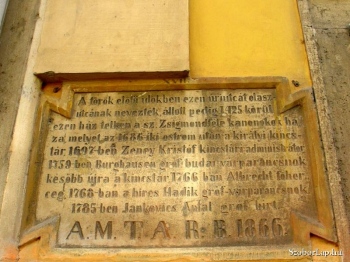 A török előtti időkben ezen úri utcát olasz
utcának nevezték, állott pedig 1425 körül
ezen ház telkén a sz. Zsigmondféle kanonokok há
za melyet az 1686iki ostrom után a királyi kincs
tár 1697-ben Zeney Kristóf kincstári adminisztrátor
1759-ben Burghausen gróf budai várparancsnok
később újra a kincstár 1766 ban Albrecht főher
ceg 1768-ban a híres Hadik gróf várparancsnok
1785-ben Jankovics Antal gróf birt
A. M. T. A. R. B. 1866.
SzoborLap.hu